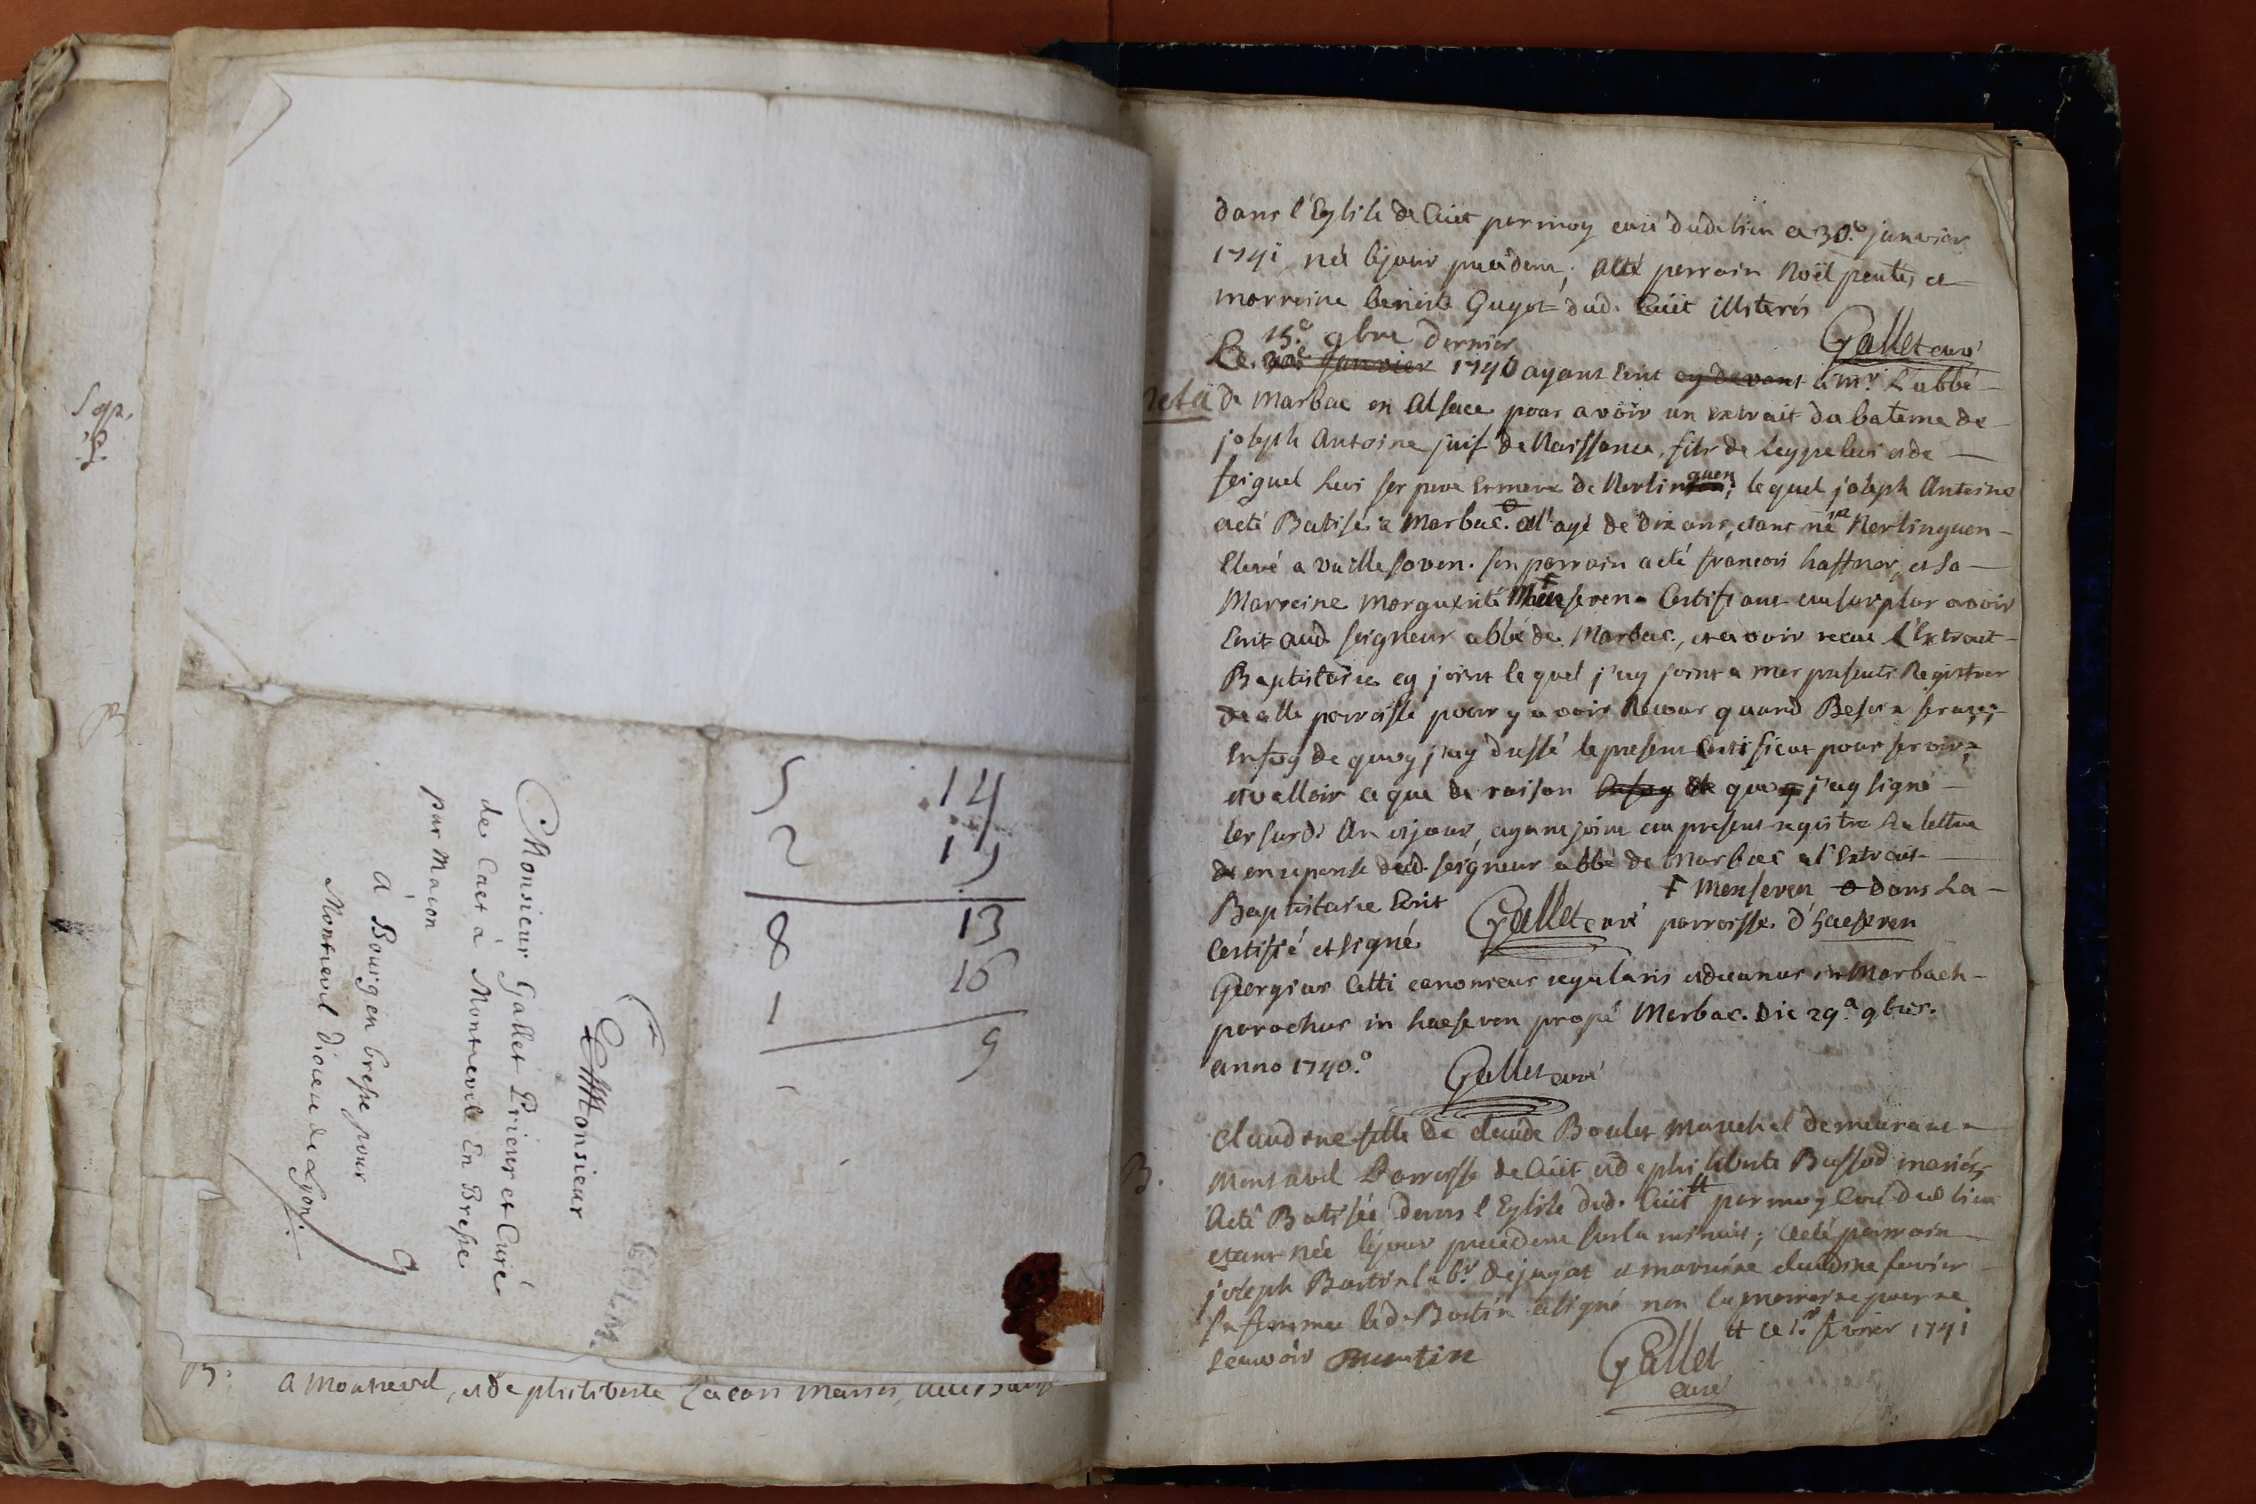 Sep.
B
5 14
2 19
8 13
1 16
9
Monsieur
Monsieur Gallet Prieur et Curé
de Cuet à Montrevel En Bresse
par Macon
A Bourg en bresse pour
Montrevel diocese de Lyon
B.
a Montrevel, et de philiberte Lacon mariés,
dans l'Eglise de Cuët par moy curé dudt lieu ce 30.e janvier
1741 né le jour precedent; a eté parrain Noël peutet, et
marreine benoite Guyot dud. Cuët illiterés
Gallet curé
15.e 9bre dernier
Le 20e janvier 1740 ayant Ecrit cy devant à Mr. L'abbé
nota de Marbac en Alsace pour avoir un extrait du bateme de
joseph Antoine juif de Naissance, fils de Leype levi et de
feiguel Levi ses pere et mere de Nerlinguen; lequel joseph Antoine
a eté Batisé a Marbac. o a l'age de dix ans, etant né a Nerlinguen
Elevé a vuillesoven. son parrain a eté francois haffner, et sa
Marreine Marguerite F Certifiant au surplus avoir
Ecrit aud. seigneur abbé de Marbac, et avoir recue l'Extrait
Baptistaire cy joint lequel j'ay joint a mes presents Registres
de cette parroisse pour y avoir Recour quand Besoin sera;
En foy de quoy j'ay dressé le present Certificat pour servir,
et valloir ce que de raison en foy de quoy j'ay signé
les surd. An et jour, ayant joint au present registre La lettre
de en reponse dud. seigneur abbé de Marbac et l'Extrait
Baptistaire Ecrit F Menseven o dans La
Certifié et signé Gallet curé parroisse d'haeseven
Georgius Catti canonicus regularis et decanus in Marbach
parochus in haeseven propé Marbac. Die 29.a 9bris.
anno 1740.o
Gallet curé
B. Claudine fille de claude Boulet Marechal demeurant a
Montravel Parroisse de Cuët et de philiberte Bussod mariés
A eté Batisée dans l'Eglise dud. Cuët # par moy Curé dud lieu
etant née le jour precedent sur la minuit; a eté parrain
joseph Bartin lab.r dejugat et marreine claudine favier
sa femme led. Bartin a signé non la marreine pour ne
scavoir Burtin # ce 1.er fevrier 1741
Gallet
curé